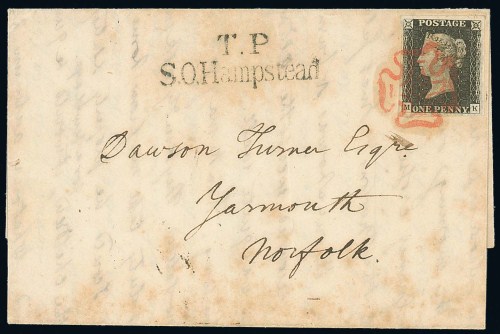 T.P
S.O.Hampstead
POSTAGE
M K
ONE PENNY
Dawson Turner Esqre.
Yarmouth
Norfolk.